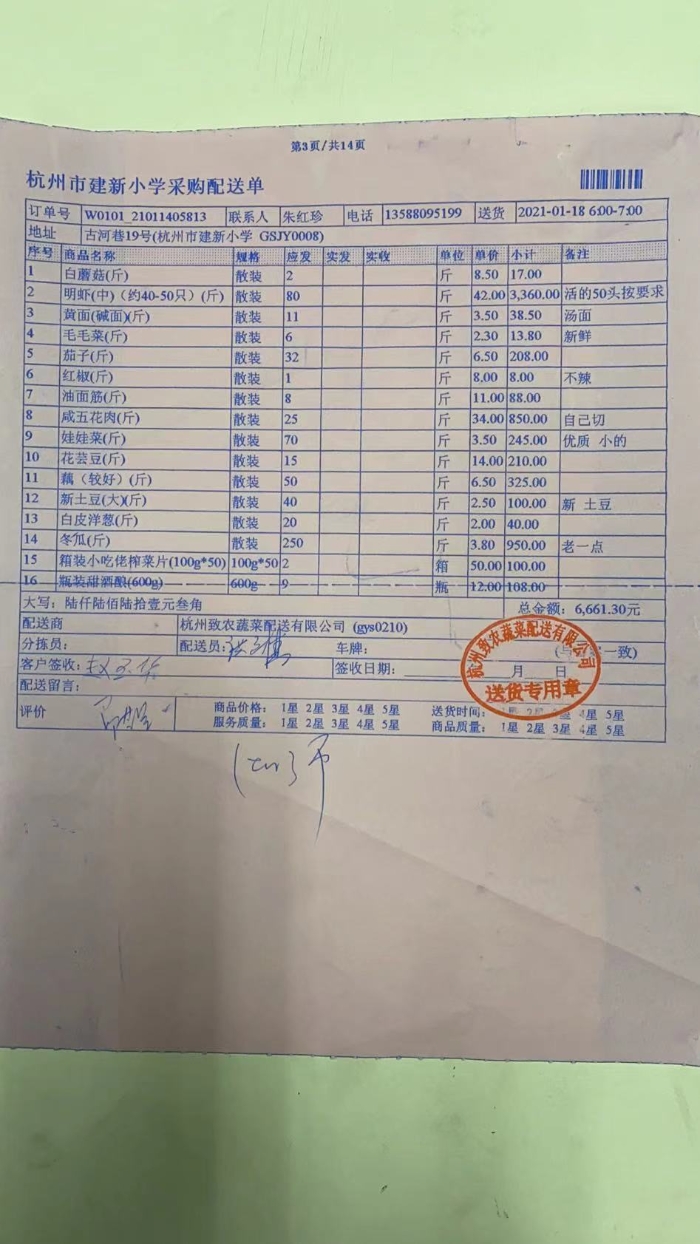 第3页/共14页
杭州市建新小学采购配送单
订单号 W0101_21011405813 联系人 朱红珍 电话 13588095199 送货 2021-01-18 6:00-7:00
地址 古河巷19号(杭州市建新小学 GSJY0008)
序号 商品名称 规格 应发 实发 实收 单位 单价 小计 备注
1 白蘑菇(斤) 散装 2 斤 8.50 17.00
2 明虾(中)(约40-50只)(斤) 散装 80 斤 42.00 3,360.00 活的50头按要求
3 黄面(碱面)(斤) 散装 11 斤 3.50 38.50 汤面
4 毛毛菜(斤) 散装 6 斤 2.30 13.80 新鲜
5 茄子(斤) 散装 32 斤 6.50 208.00
6 红椒(斤) 散装 1 斤 8.00 8.00 不辣
7 油面筋(斤) 散装 8 斤 11.00 88.00
8 咸五花肉(斤) 散装 25 斤 34.00 850.00 自己切
9 娃娃菜(斤) 散装 70 斤 3.50 245.00 优质 小的
10 花芸豆(斤) 散装 15 斤 14.00 210.00
11 藕（较好）(斤) 散装 50 斤 6.50 325.00
12 新土豆(大)(斤) 散装 40 斤 2.50 100.00 新 土豆
13 白皮洋葱(斤) 散装 20 斤 2.00 40.00
14 冬瓜(斤) 散装 250 斤 3.80 950.00 老一点
15 箱装小吃佬榨菜片(100g*50) 100g*50 2 箱 50.00 100.00
16 瓶装甜酒酿(600g) 600g 9 瓶 12.00 108.00
大写：陆仟陆佰陆拾壹元叁角 总金额：6,661.30元
配送商 杭州致农蔬菜配送有限公司 (gys0210)
分拣员： 配送员： 车牌： 一致)
客户签收： 签收日期： 月 日
杭州致农蔬菜配送有限公司
送货专用章
配送留言：
评价 商品价格： 1星 2星 3星 4星 5星 送货时间： 2星 4星 5星
服务质量： 1星 2星 3星 4星 5星 商品质量： 1星 2星 3星 4星 5星